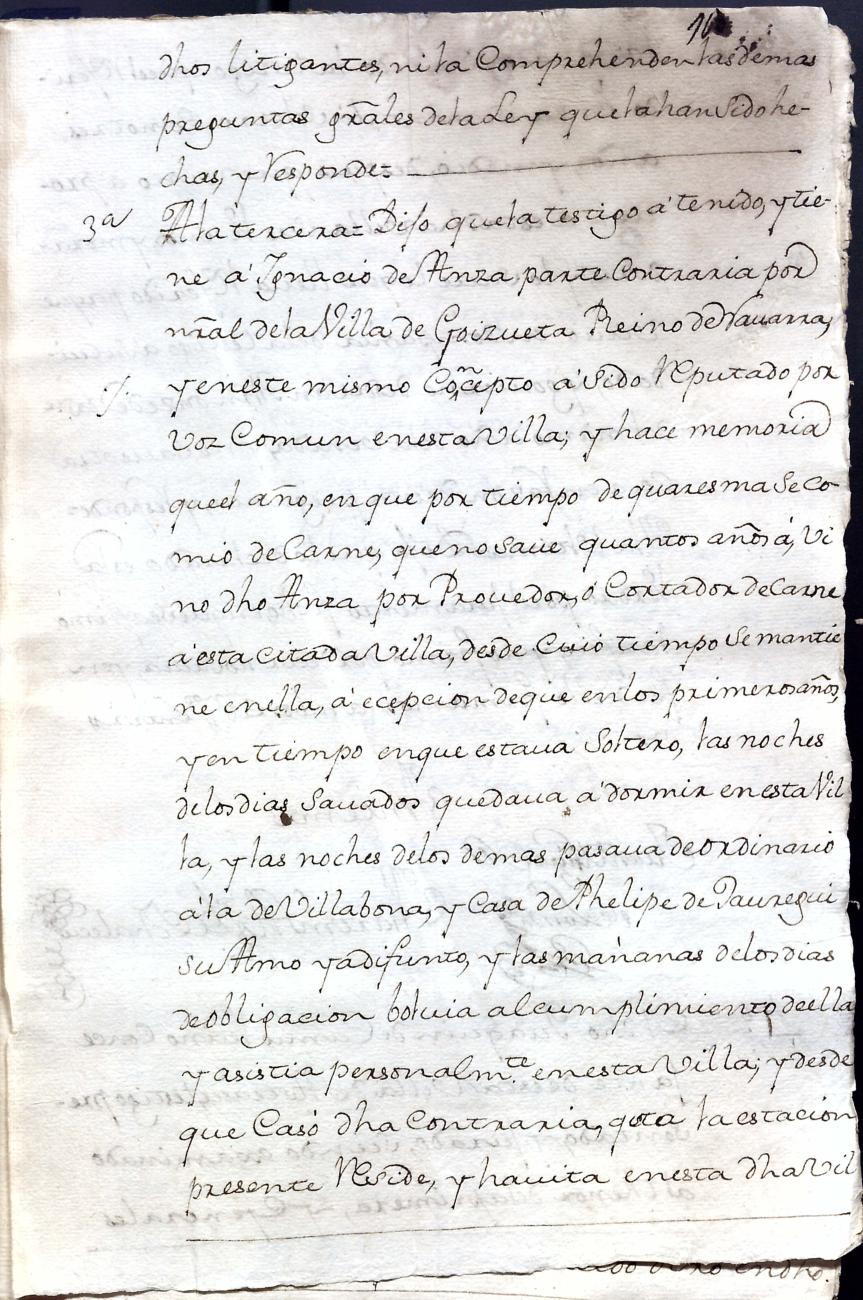 16
dhos litigantes, ni la Comprehenden las demas
preguntas grãles de la Ley que la han Sido he-
chas, y Responde=
3ª A la tercera= Dijo que la testigo á tenido, y tie-
ne á Ygnacio de Anza parte Contraria por
nr̃al de la Villa de Goizueta Reino de Navarra,
y en este mismo Concepto á Sido Reputado por
Voz Comun en esta Villa; y hace memoria
que el año, en que por tiempo de quaresma Se Co-
mió de Carne, que no Save quantos años á, Vi
no dho Anza por Provedor, ó Cortador de Carne
á esta citada Villa, desde Cuio tiempo Se mantie
ne en ella, á ecepcion de que en los primeros años,
y en tiempo en que estava Soltero, las noches
de los dias Savados quedava á dormir en esta Vil
la, y las noches de los demas pasava de ordinario
á la de Villabona, y Casa de Phelipe de Jauregui
Su Amo ya difunto, y las mañanas de los dias
de obligacion bolvia al cumplimiento de ella
y asistia personalmte. en esta Villa; y desde
que Casó dha Contraria, hasta la estacion
presente Reside, y havita en esta dha Vil